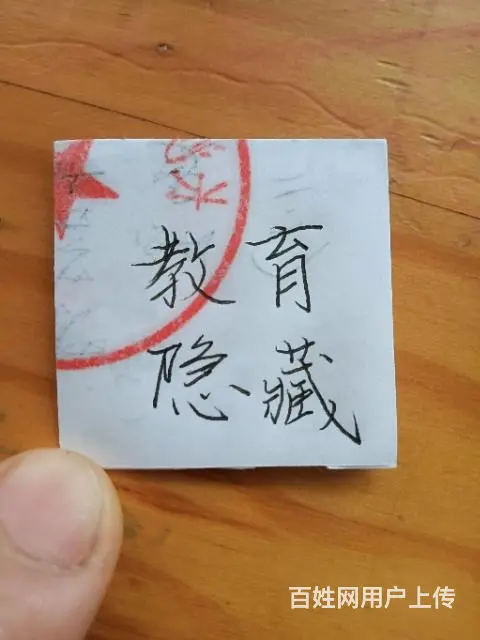 教育
隐藏
百姓网用户上传